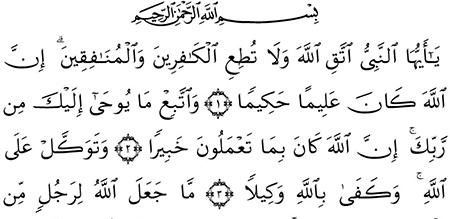 بِسْمِ ٱللَّهِ ٱلرَّحْمَٰنِ ٱلرَّحِيمِ
يَٰٓأَيُّهَا ٱلنَّبِىُّ ٱتَّقِ ٱللَّهَ وَلَا تُطِعِ ٱلْكَٰفِرِينَ وَٱلْمُنَٰفِقِينَ ۗ إِنَّ
ٱللَّهَ كَانَ عَلِيمًا حَكِيمًا ﴿١﴾ وَٱتَّبِعْ مَا يُوحَىٰٓ إِلَيْكَ مِن
رَّبِّكَ ۚ إِنَّ ٱللَّهَ كَانَ بِمَا تَعْمَلُونَ خَبِيرًا ﴿٢﴾ وَتَوَكَّلْ عَلَى
ٱللَّهِ ۚ وَكَفَىٰ بِٱللَّهِ وَكِيلًا ﴿٣﴾ مَّا جَعَلَ ٱللَّهُ لِرَجُلٍ مِّن